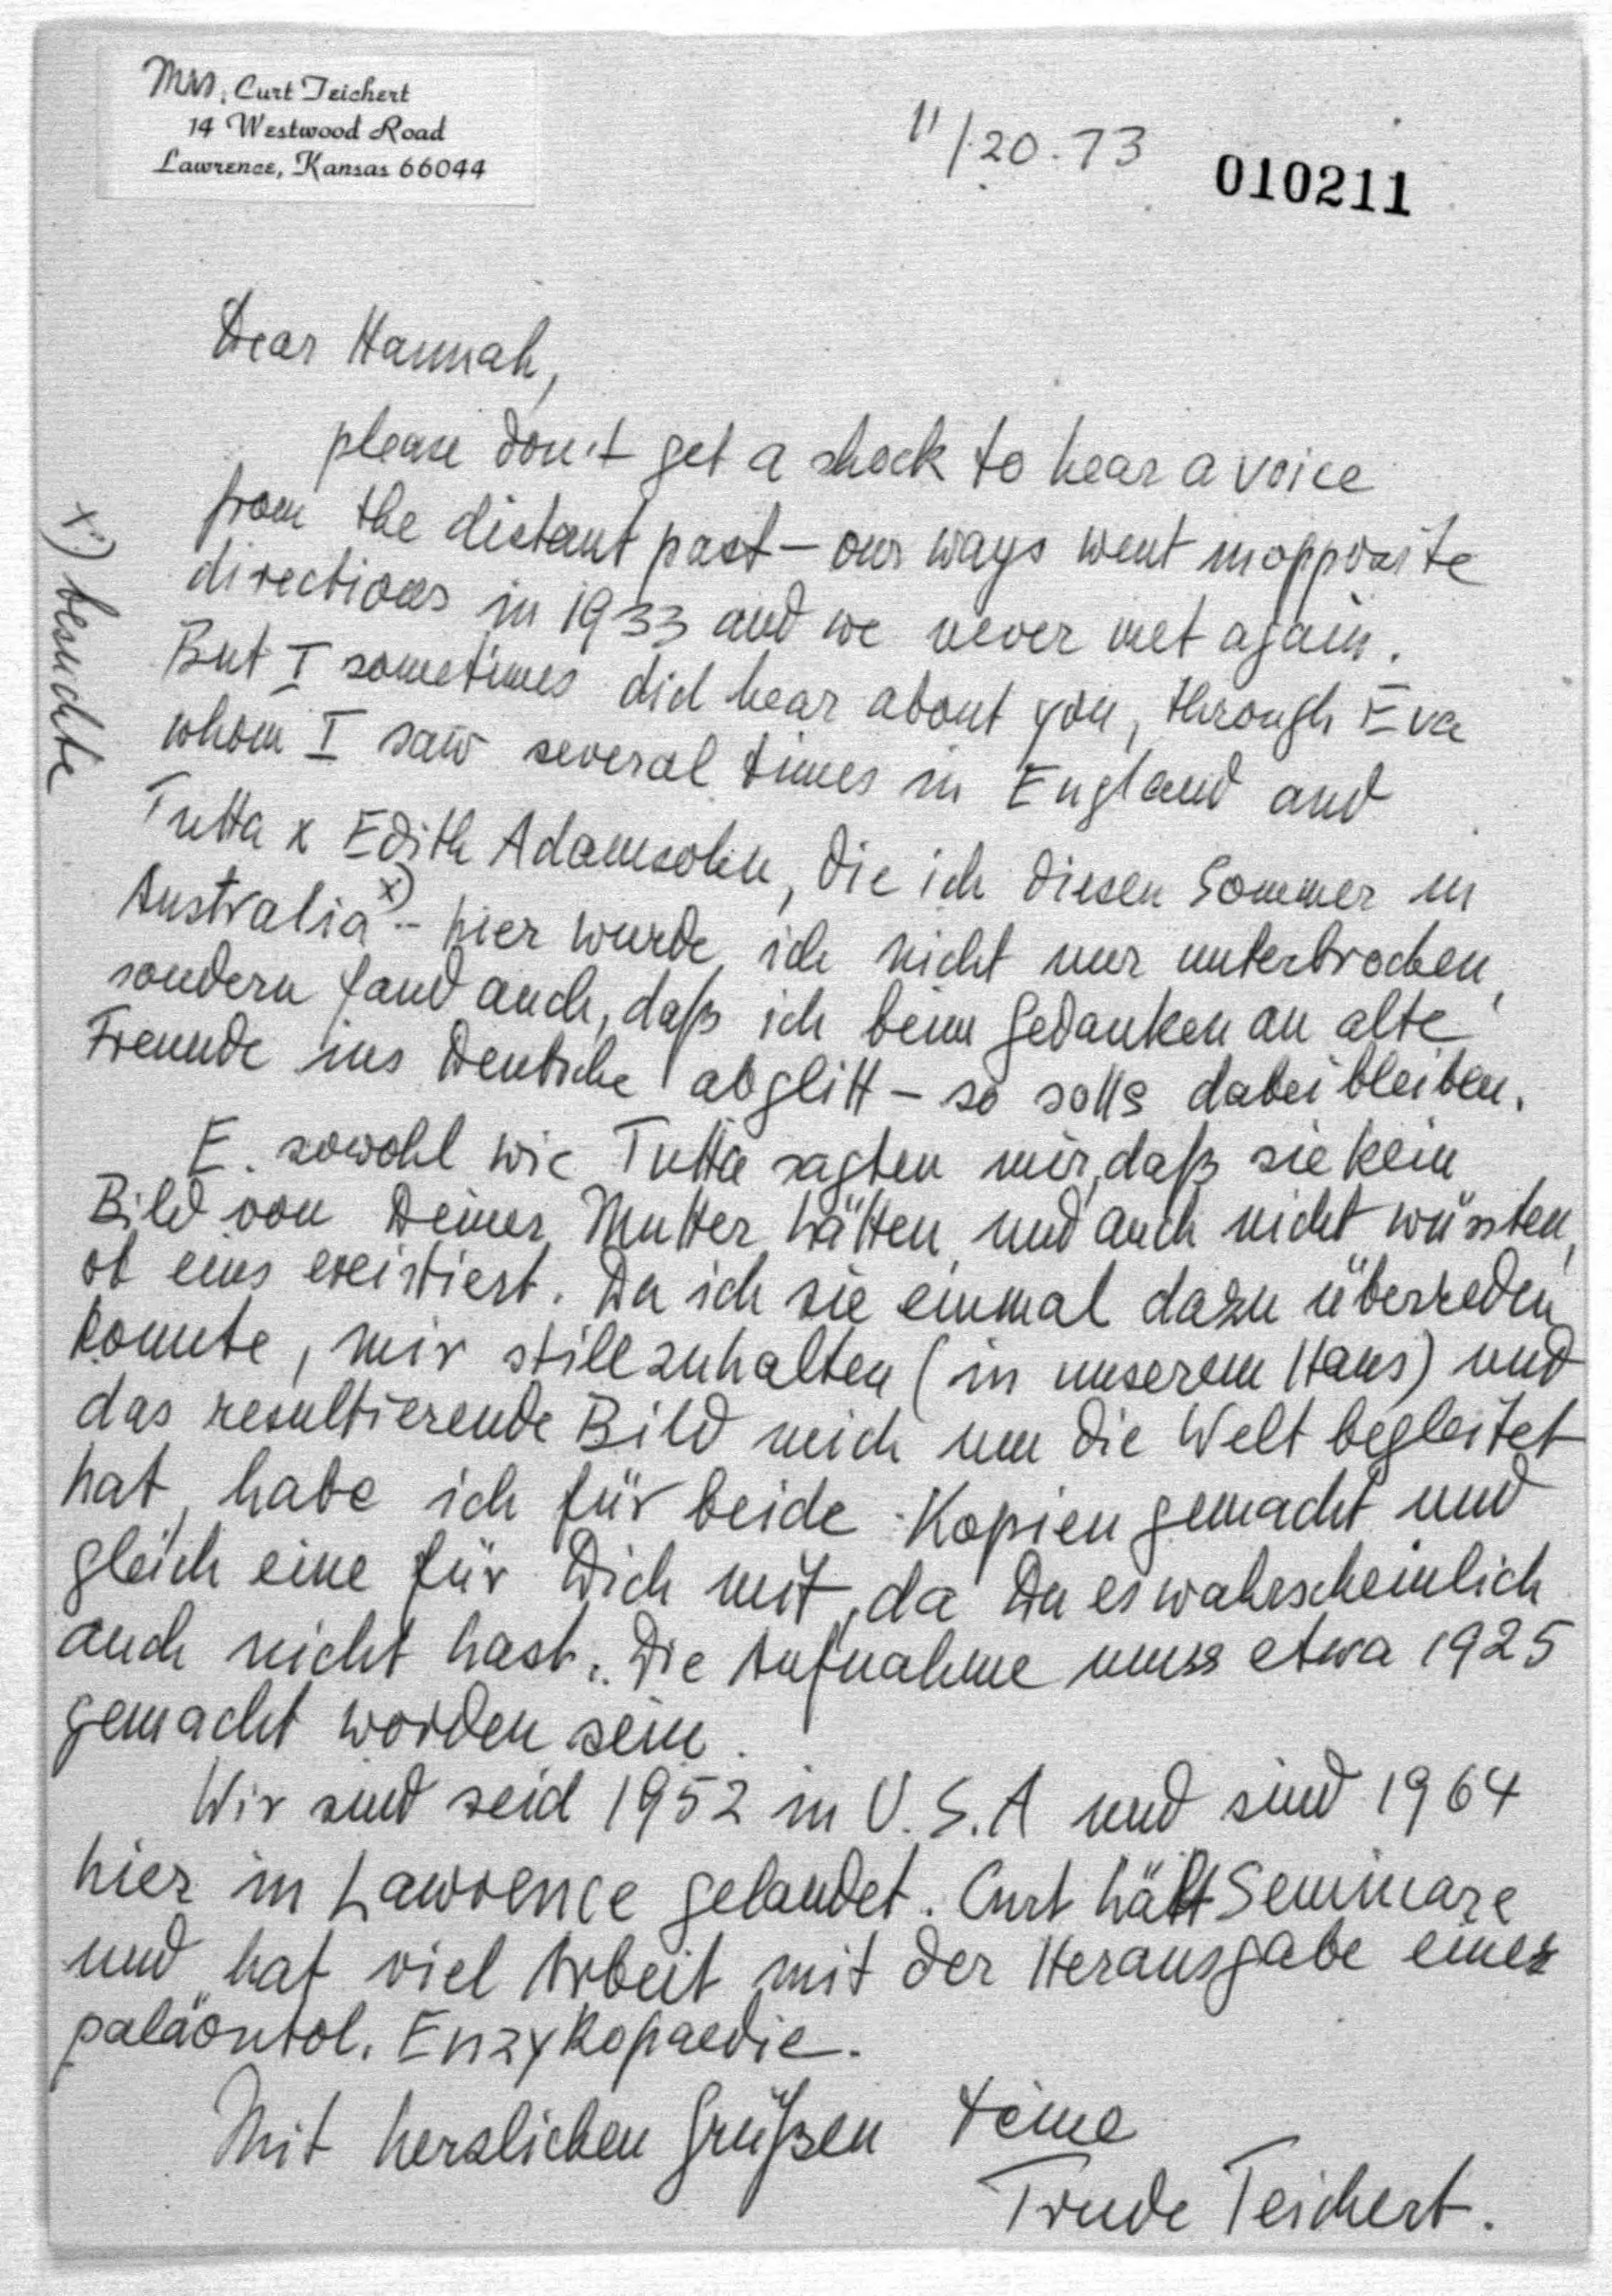 Mrs. Curt Teichert
14 Westwood Road
Lawrence, Kansas 66044
11/20.73
010211
Dear Hannah,
please don't get a shock to hear a voice
from the distant past – our ways went in opposite
directions in 1933 and we never met again.
But I sometimes did hear about you, through Eva
whom I saw several times in England and
Tutta x Edith Adamsohn, die ich diesen Sommer in
Australia x) – hier wurde ich nicht nur unterbrochen,
sondern fand auch, daß ich beim Gedanken an alte
Freunde ins Deutsche abglitt – so solls dabei bleiben.
x) besuchte
E. sowohl wie Tutta sagten mir, daß sie kein
Bild von Deiner Mutter hätten und auch nicht wüssten,
ob eins existiert. Da ich sie einmal dazu überreden
konnte, mir stillzuhalten (in unserem Haus) und
das resultierende Bild mich um die Welt begleitet
hat, habe ich für beide Kopien gemacht und
gleich eine für Dich mit, da Du es wahrscheinlich
auch nicht hast. Die Aufnahme muss etwa 1925
gemacht worden sein.
Wir sind seid 1952 in U.S.A und sind 1964
hier in Lawrence gelandet. Curt hält Seminare
und hat viel Arbeit mit der Herausgabe einer
paläontol. Enzykopaedie.
Mit herzlichen Grüßen Deine
Trude Teichert.